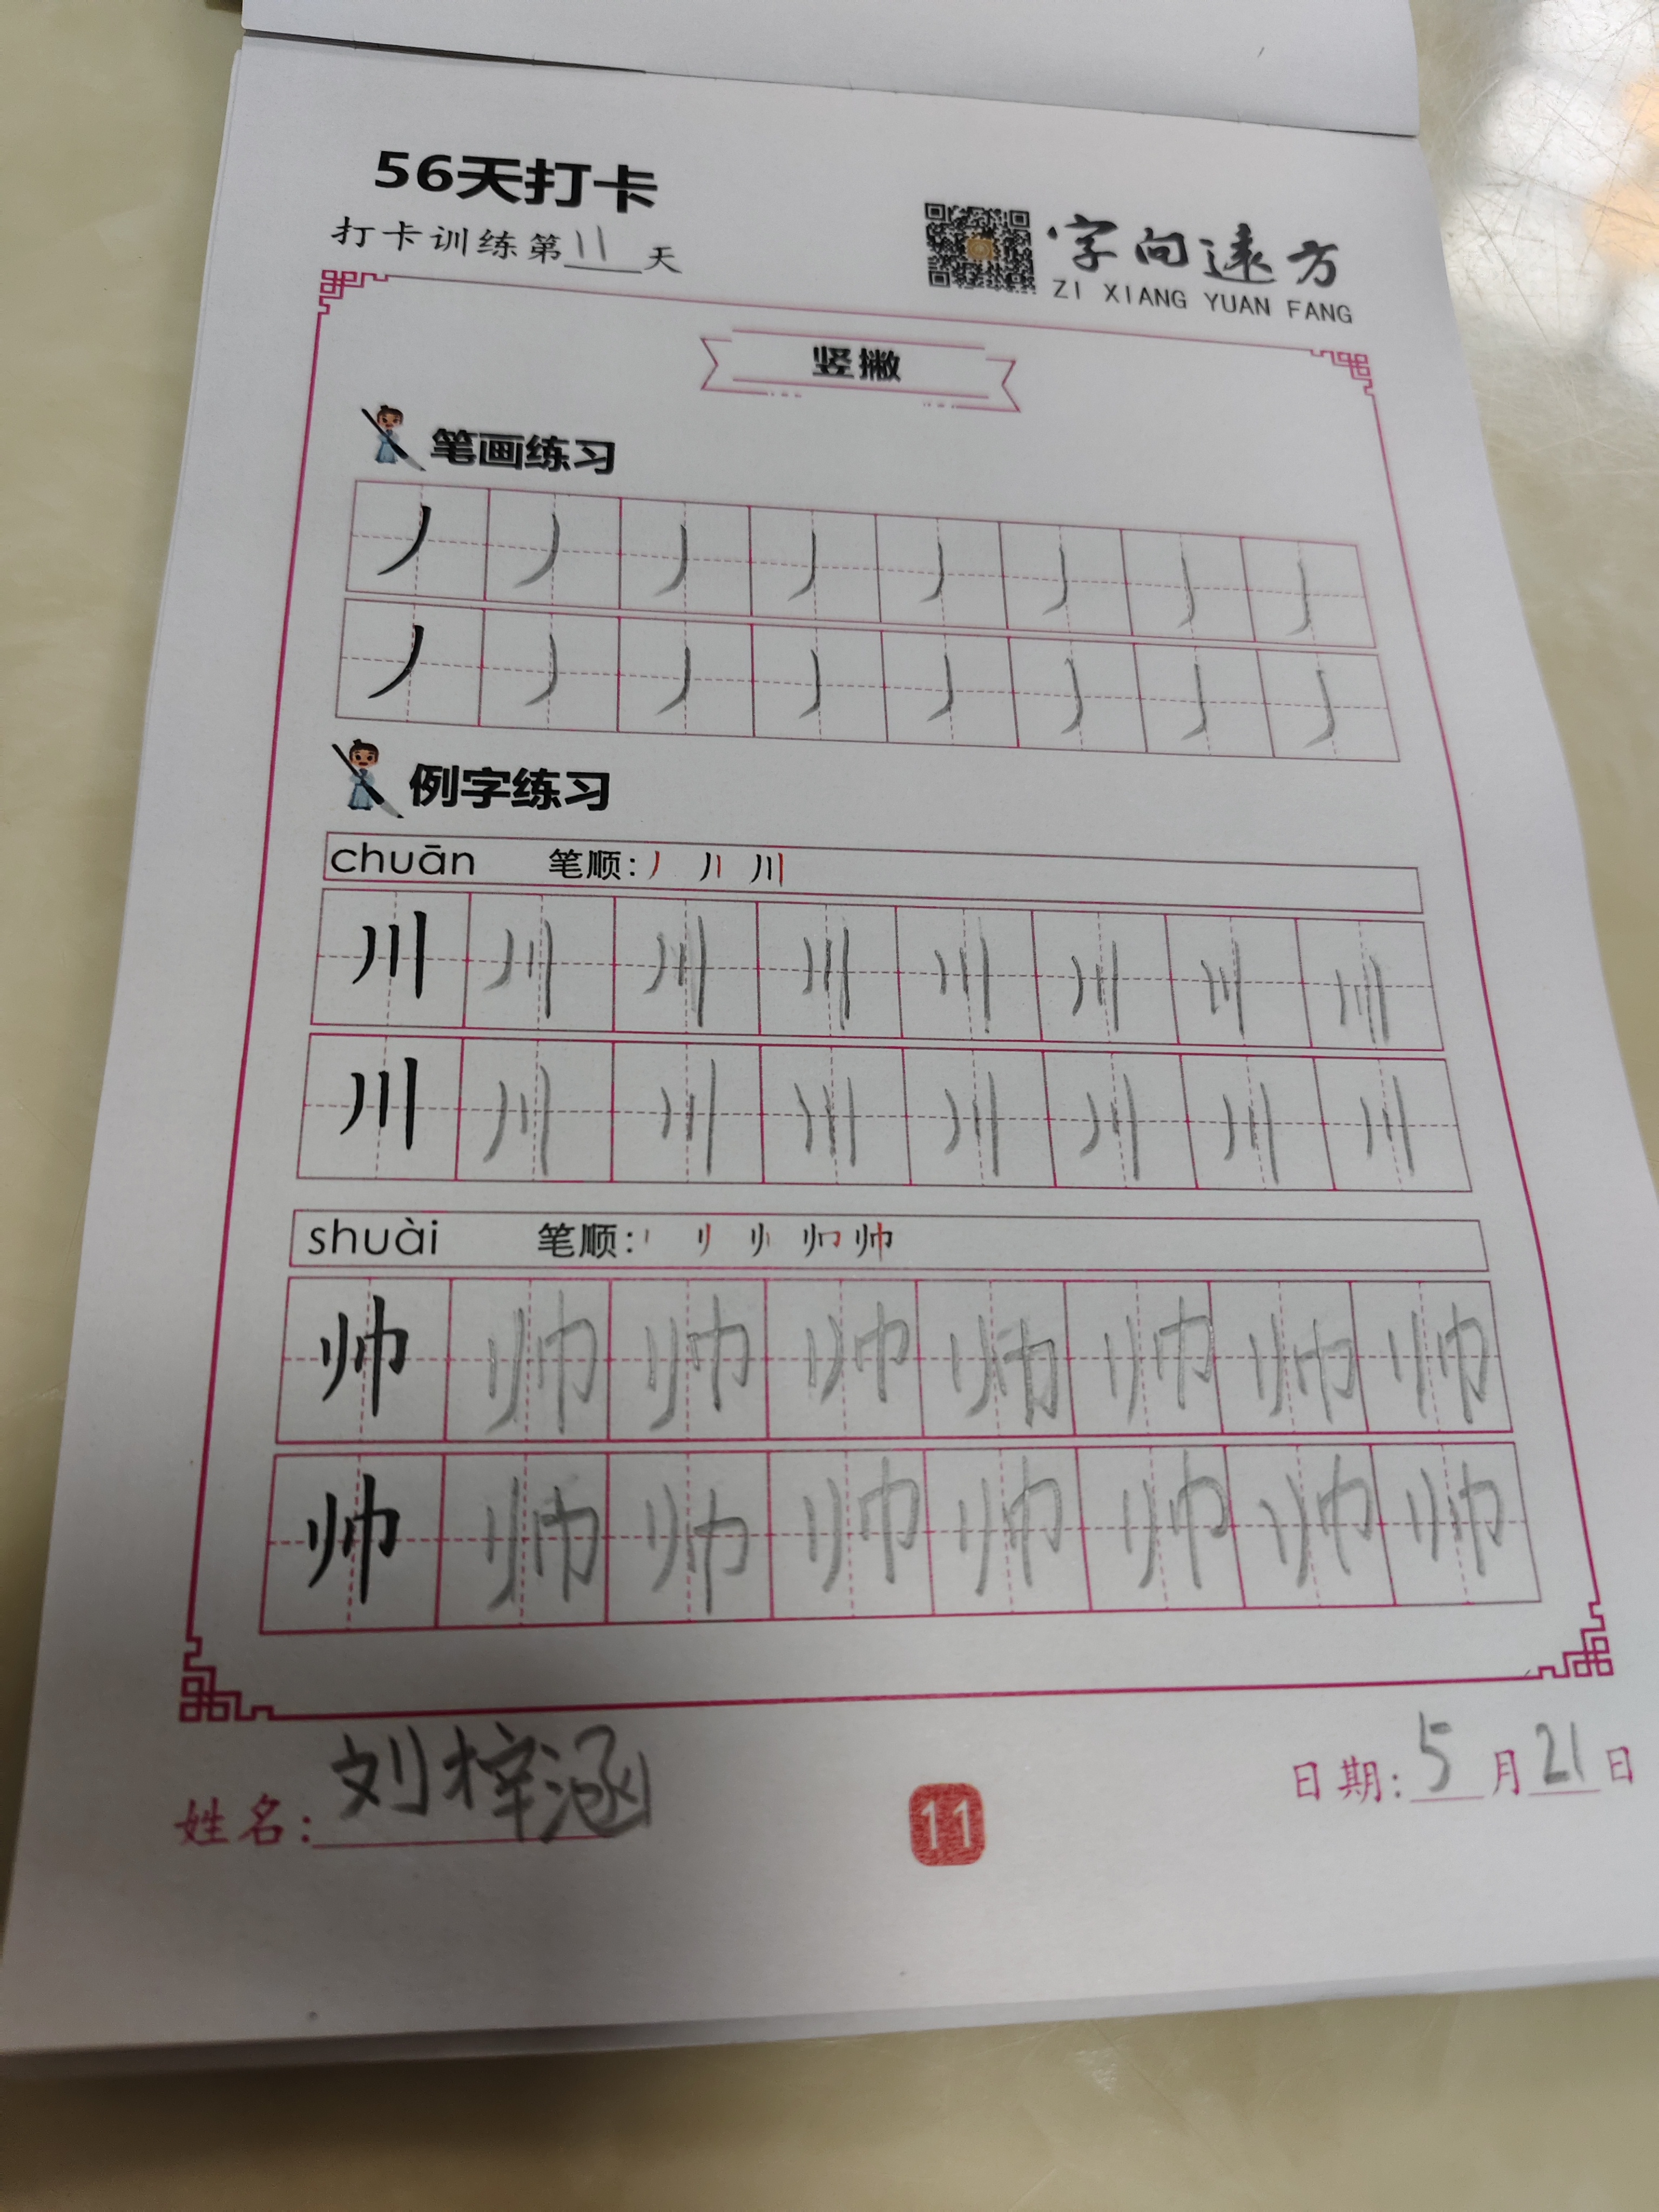 56天打卡
打卡训练第11天
字向远方
ZI XIANG YUAN FANG
竖撇
笔画练习
丿 丿 丿 丿 丿 丿 丿 丿
丿 丿 丿 丿 丿 丿 丿 丿
例字练习
chuān 笔顺: 丿 丿丨 川
川 川 川 川 川 川 川 川
川 川 川 川 川 川 川 川
shuài 笔顺: 丨 刂 帅
帅 帅 帅 帅 帅 帅 帅 帅
帅 帅 帅 帅 帅 帅 帅 帅
姓名: 刘梓涵
11
日期: 5月21日